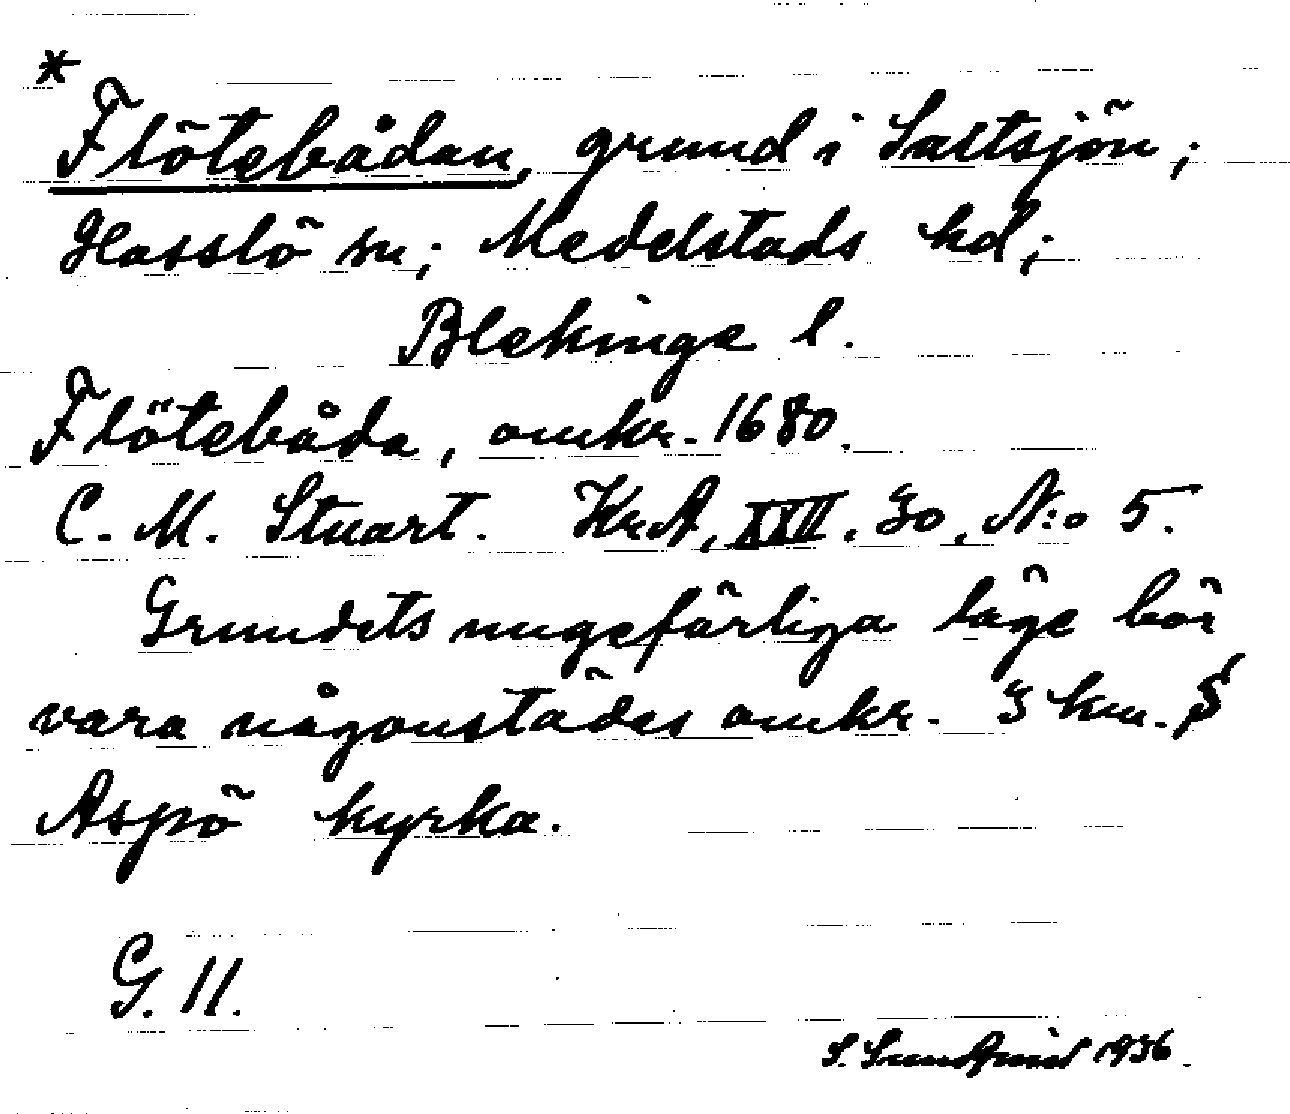 * Flötebådan, grund i Saltsjön;
Hasslö sn; Medelstads hd;
Blekinge l.
Flötebåda, omkr. 1680.
C. M. Stuart. KrA, XXII. 30, N:o 5.
Grundets ungefärliga läge bör
vara någonstädes omkr. 3 km. S
Aspö kyrka.
G. 11.
S. Sundqvist 1936.